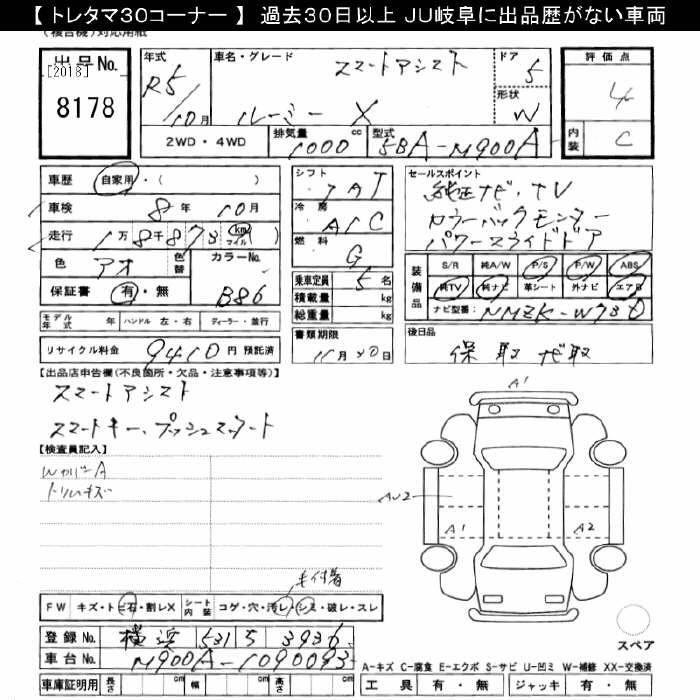 【 トレタマ30コーナー 】 過去30日以上 JU岐阜に出品歴がない車両
(複合機)対応用紙
出品No.
[2018]
8178
年式 R5/10月
車名・グレード スマートアシスト
ルーミー X
ドア 5
形状 W
評価点 4
内装 C
2WD・4WD
排気量 1000 cc
型式 5BA-M900A
車歴 自家用・( )
車検 8年10月
走行 1万8千873 km マイル
色 アオ
色替
カラーNo. B86
保証書 有・無
モデル年式 年
ハンドル 左・右
ディーラー・並行
リサイクル料金 9410円 預託済
シフト IAT
冷房 AIC
燃料 G
乗車定員 5名
積載量 kg
総重量 kg
書類期限 11月30日
セールスポイント
純正ナビ・TV
カラーバックモニター
パワースライドドア
装備品
S/R 純A/W P/S P/W ABS
純TV 純ナビ 革シート 外ナビ エアB
ナビ型番: NMZK-W73D
後日品
保 取 ナビ取
【出品店申告欄(不良箇所・欠品・注意事項等)】
スマートアシスト
スマートキー、プッシュスタート
【検査員記入】
WカバーA
トリムキズ
A1
AU2
A1
A2
毛付着
FW キズ・トビ石・割レX
シート内装 コゲ・穴・汚レ・シミ・破レ・スレ
登録No. 横浜 531 5 3936
車台No. M900A-1090093
車庫証明用 長さ cm 幅 cm 高さ cm
スペア
A-キズ C-腐食 E-エクボ S-サビ U-凹ミ W-補修 XX-交換済
工具 有・無 ジャッキ 有・無